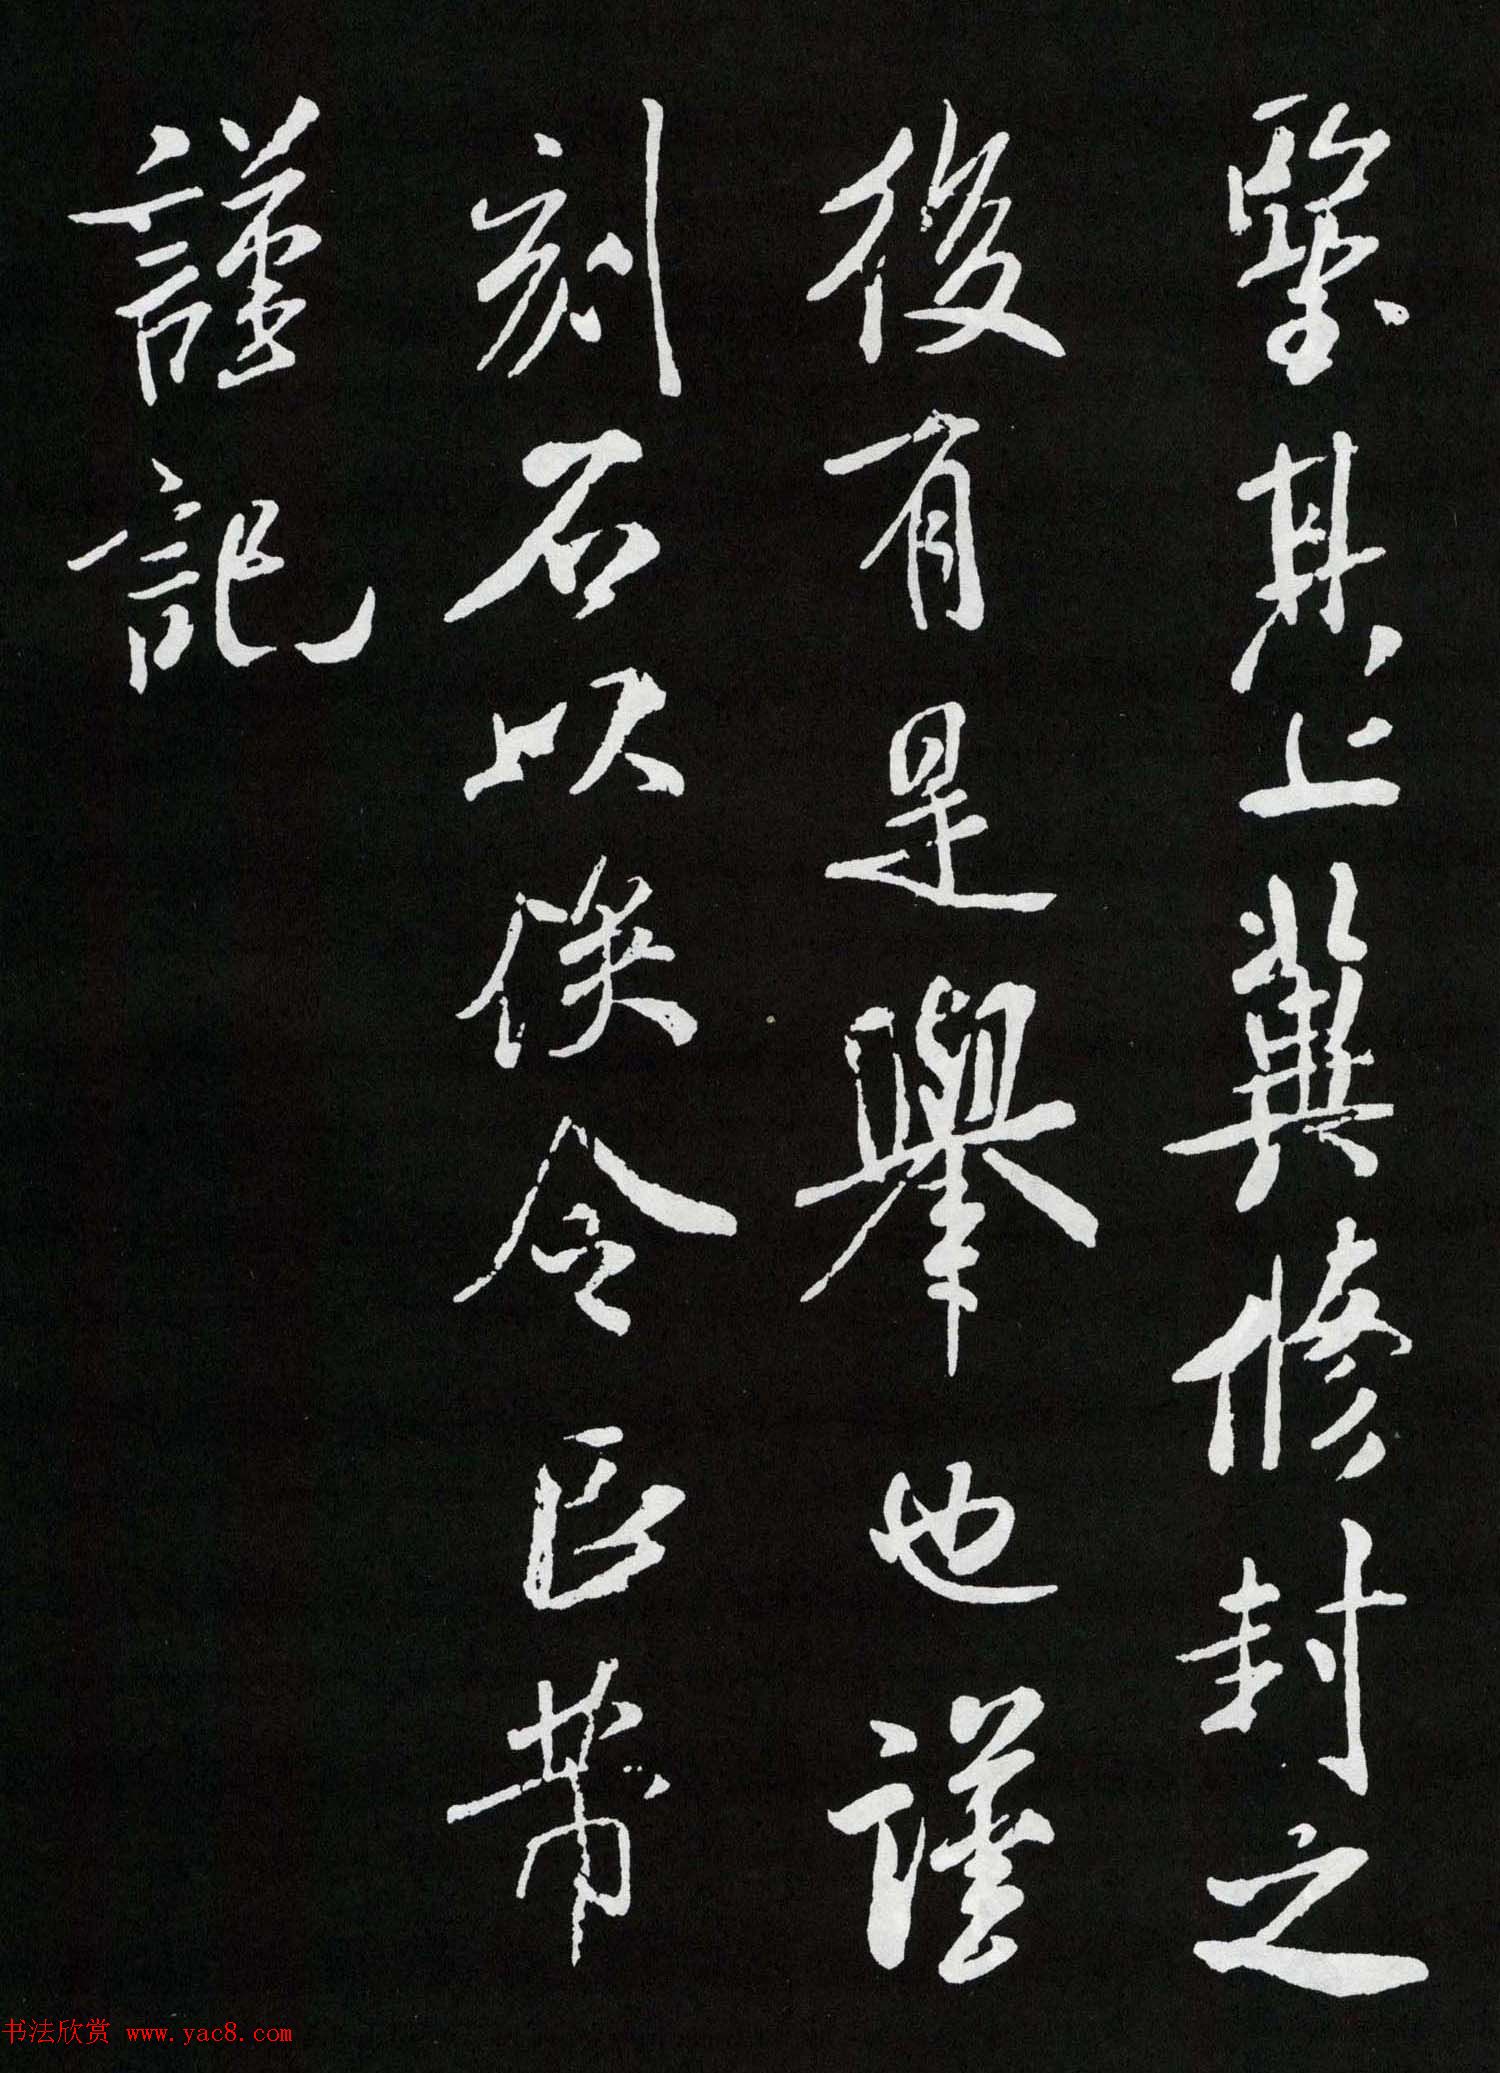 其上冀修封之
後有是舉也謹
刻石以俟令臣芾
謹記
书法欣赏 www.yac8.com